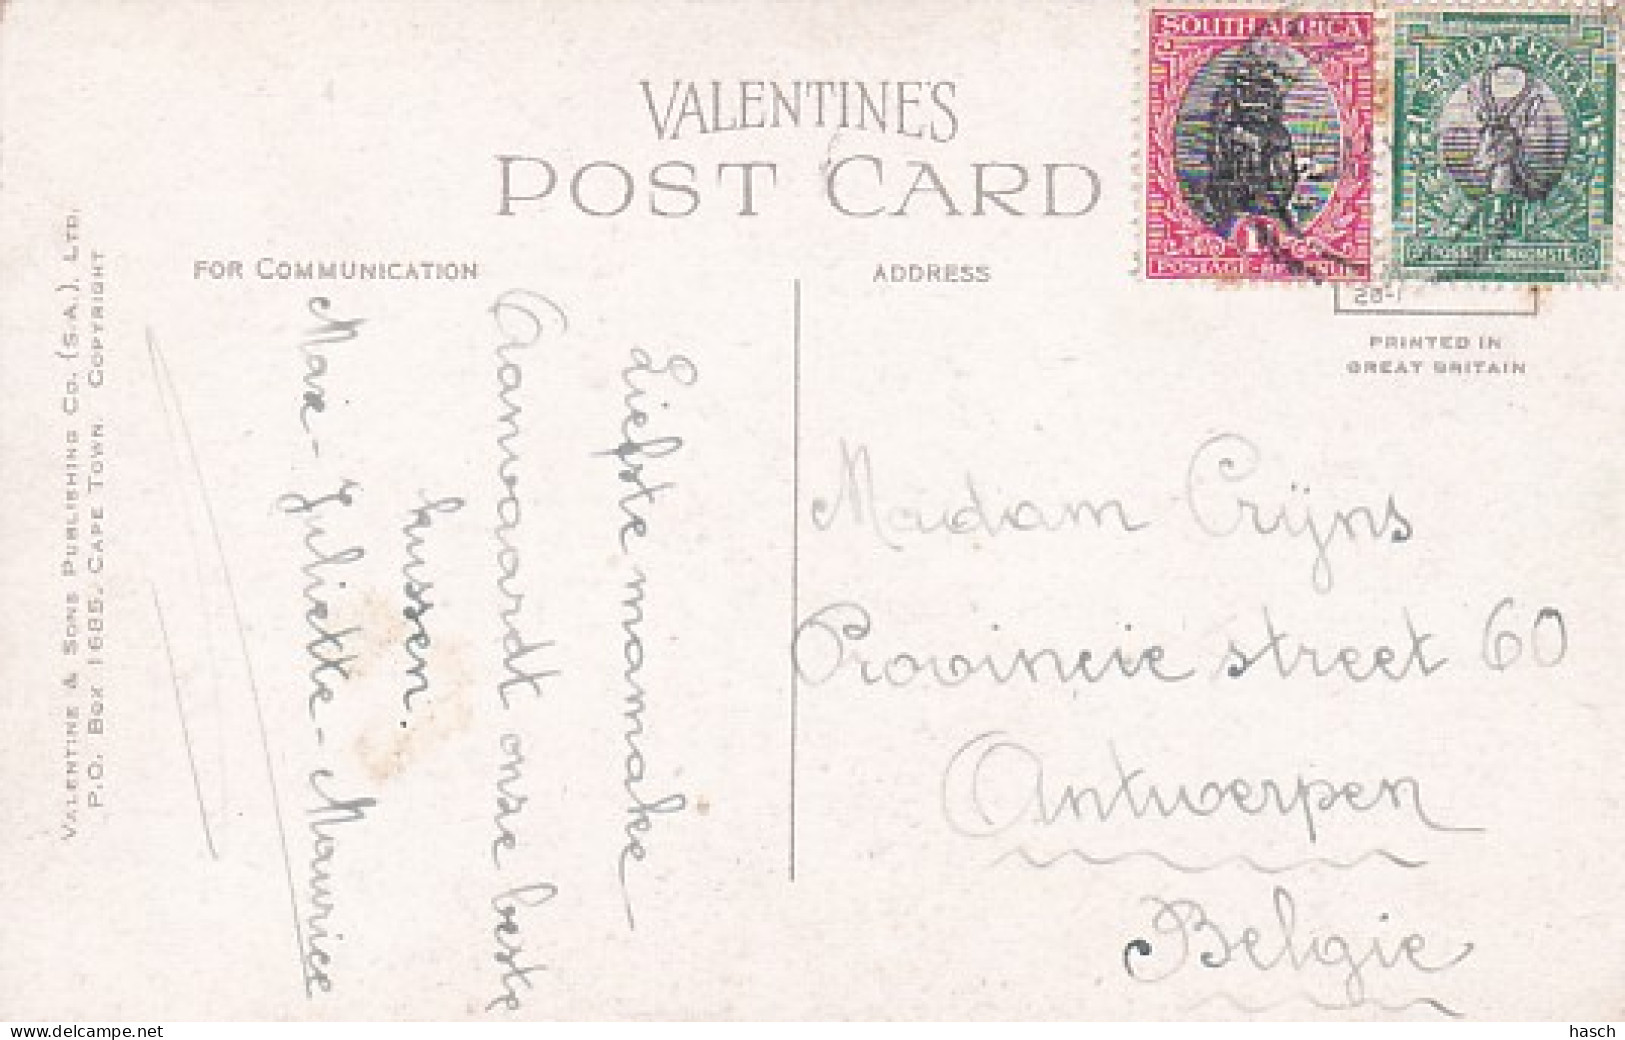 VALENTINE'S
POST CARD
FOR COMMUNICATION
ADDRESS
SOUTH AFRICA
POSTAGE-REVENUE
SUIDAFRIKA
POSSEEL-INKOMSTE
28-1
PRINTED IN
GREAT BRITAIN
VALENTINE & SONS PUBLISHING CO. (S.A.), LTD.
P.O. BOX 1685, CAPE TOWN. COPYRIGHT
Liefste mamake
Aanvaardt onze beste
kussen.
Max - Juliette - Maurice
Madam Crijns
Provincie street 60
Antwerpen
Belgie
hasch